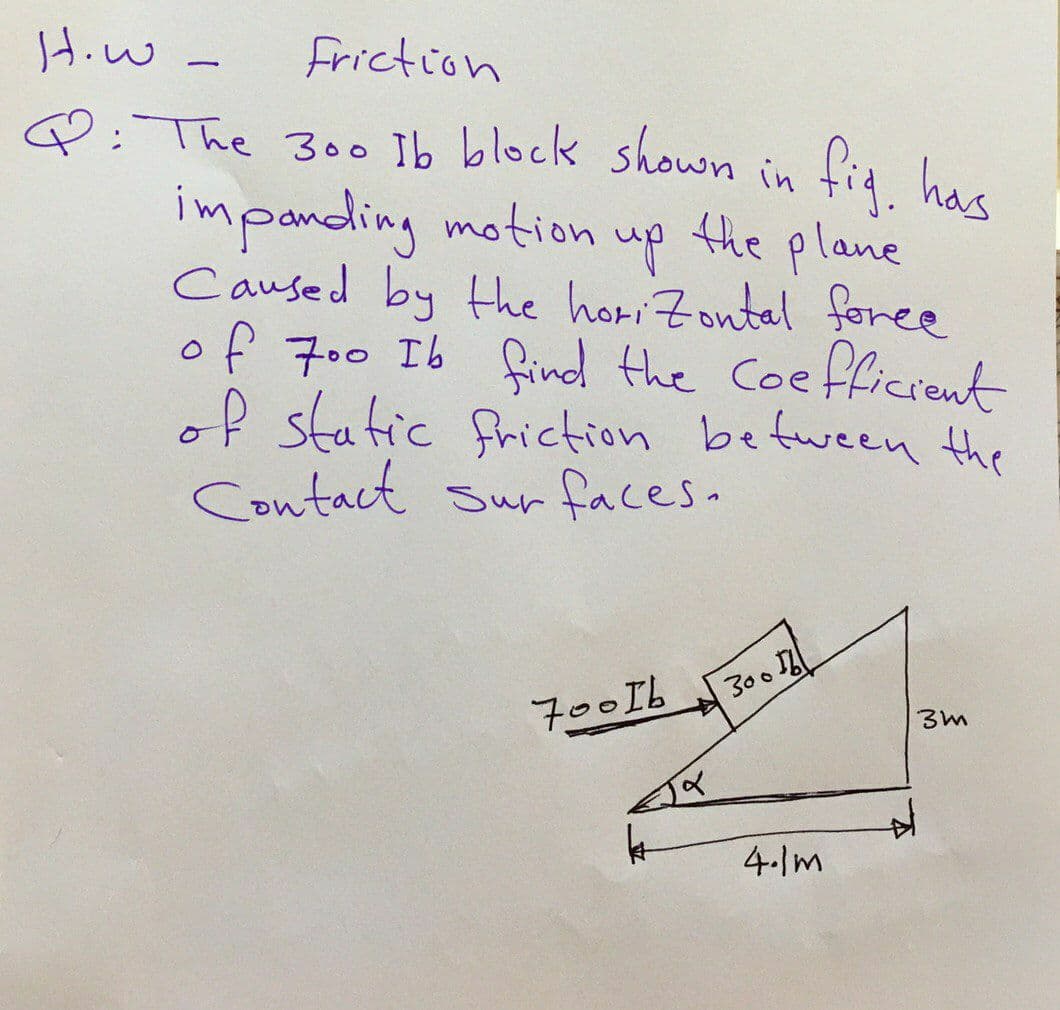 H.w - friction
Q: The 300 Ib block shown in fig. has
impanding motion up the plane
Caused by the horiZontal force
of 700 Ib find the Coefficient
of static friction between the
Contact surfaces.
300 Ib
700Ib
3m
α
4.1m